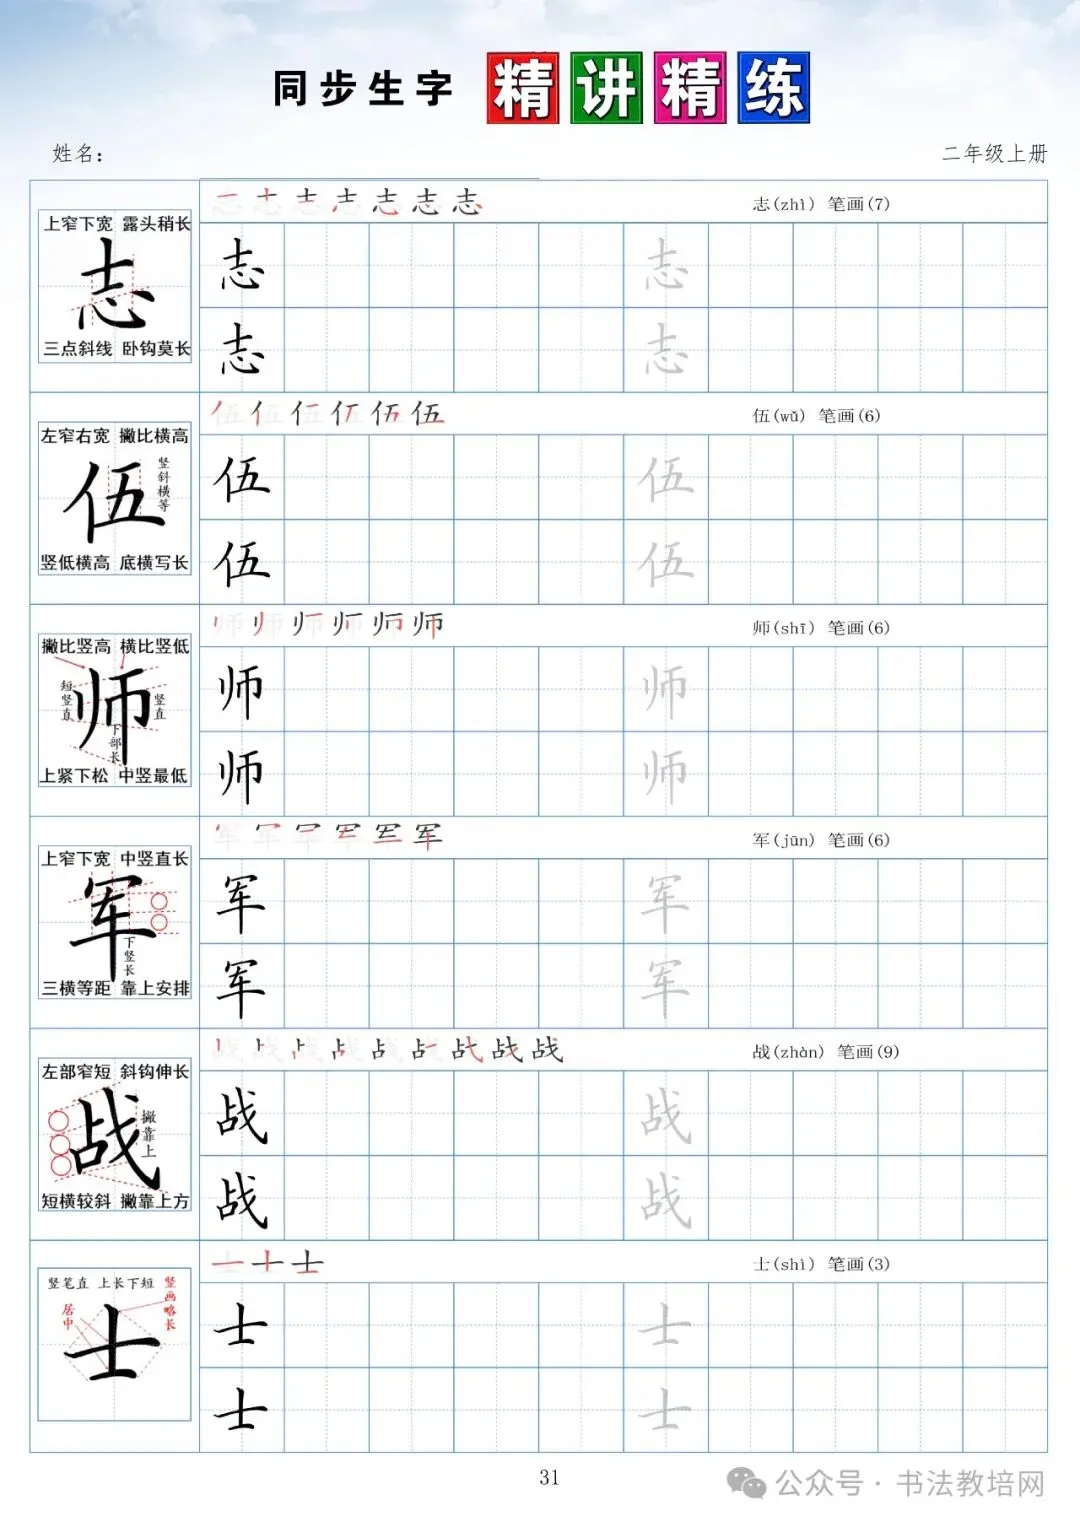 同步生字 精讲精练
姓名：
二年级上册
志(zhì) 笔画(7)
上窄下宽 露头稍长
志
三点斜线 卧钩莫长
志 志
志 志
伍(wǔ) 笔画(6)
左窄右宽 撇比横高
伍
竖斜横等
竖低横高 底横写长
伍 伍
伍 伍
师(shī) 笔画(6)
撇比竖高 横比竖低
短竖直
师
竖直
下部长
上紧下松 中竖最低
师 师
师 师
军(jūn) 笔画(6)
上窄下宽 中竖直长
军
下竖长
三横等距 靠上安排
军 军
军 军
战(zhàn) 笔画(9)
左部窄短 斜钩伸长
战
撇靠上
短横较斜 撇靠上方
战 战
战 战
士(shì) 笔画(3)
竖笔直 上长下短
竖画略长
居中
士
士 士
士 士
31
公众号·书法教培网